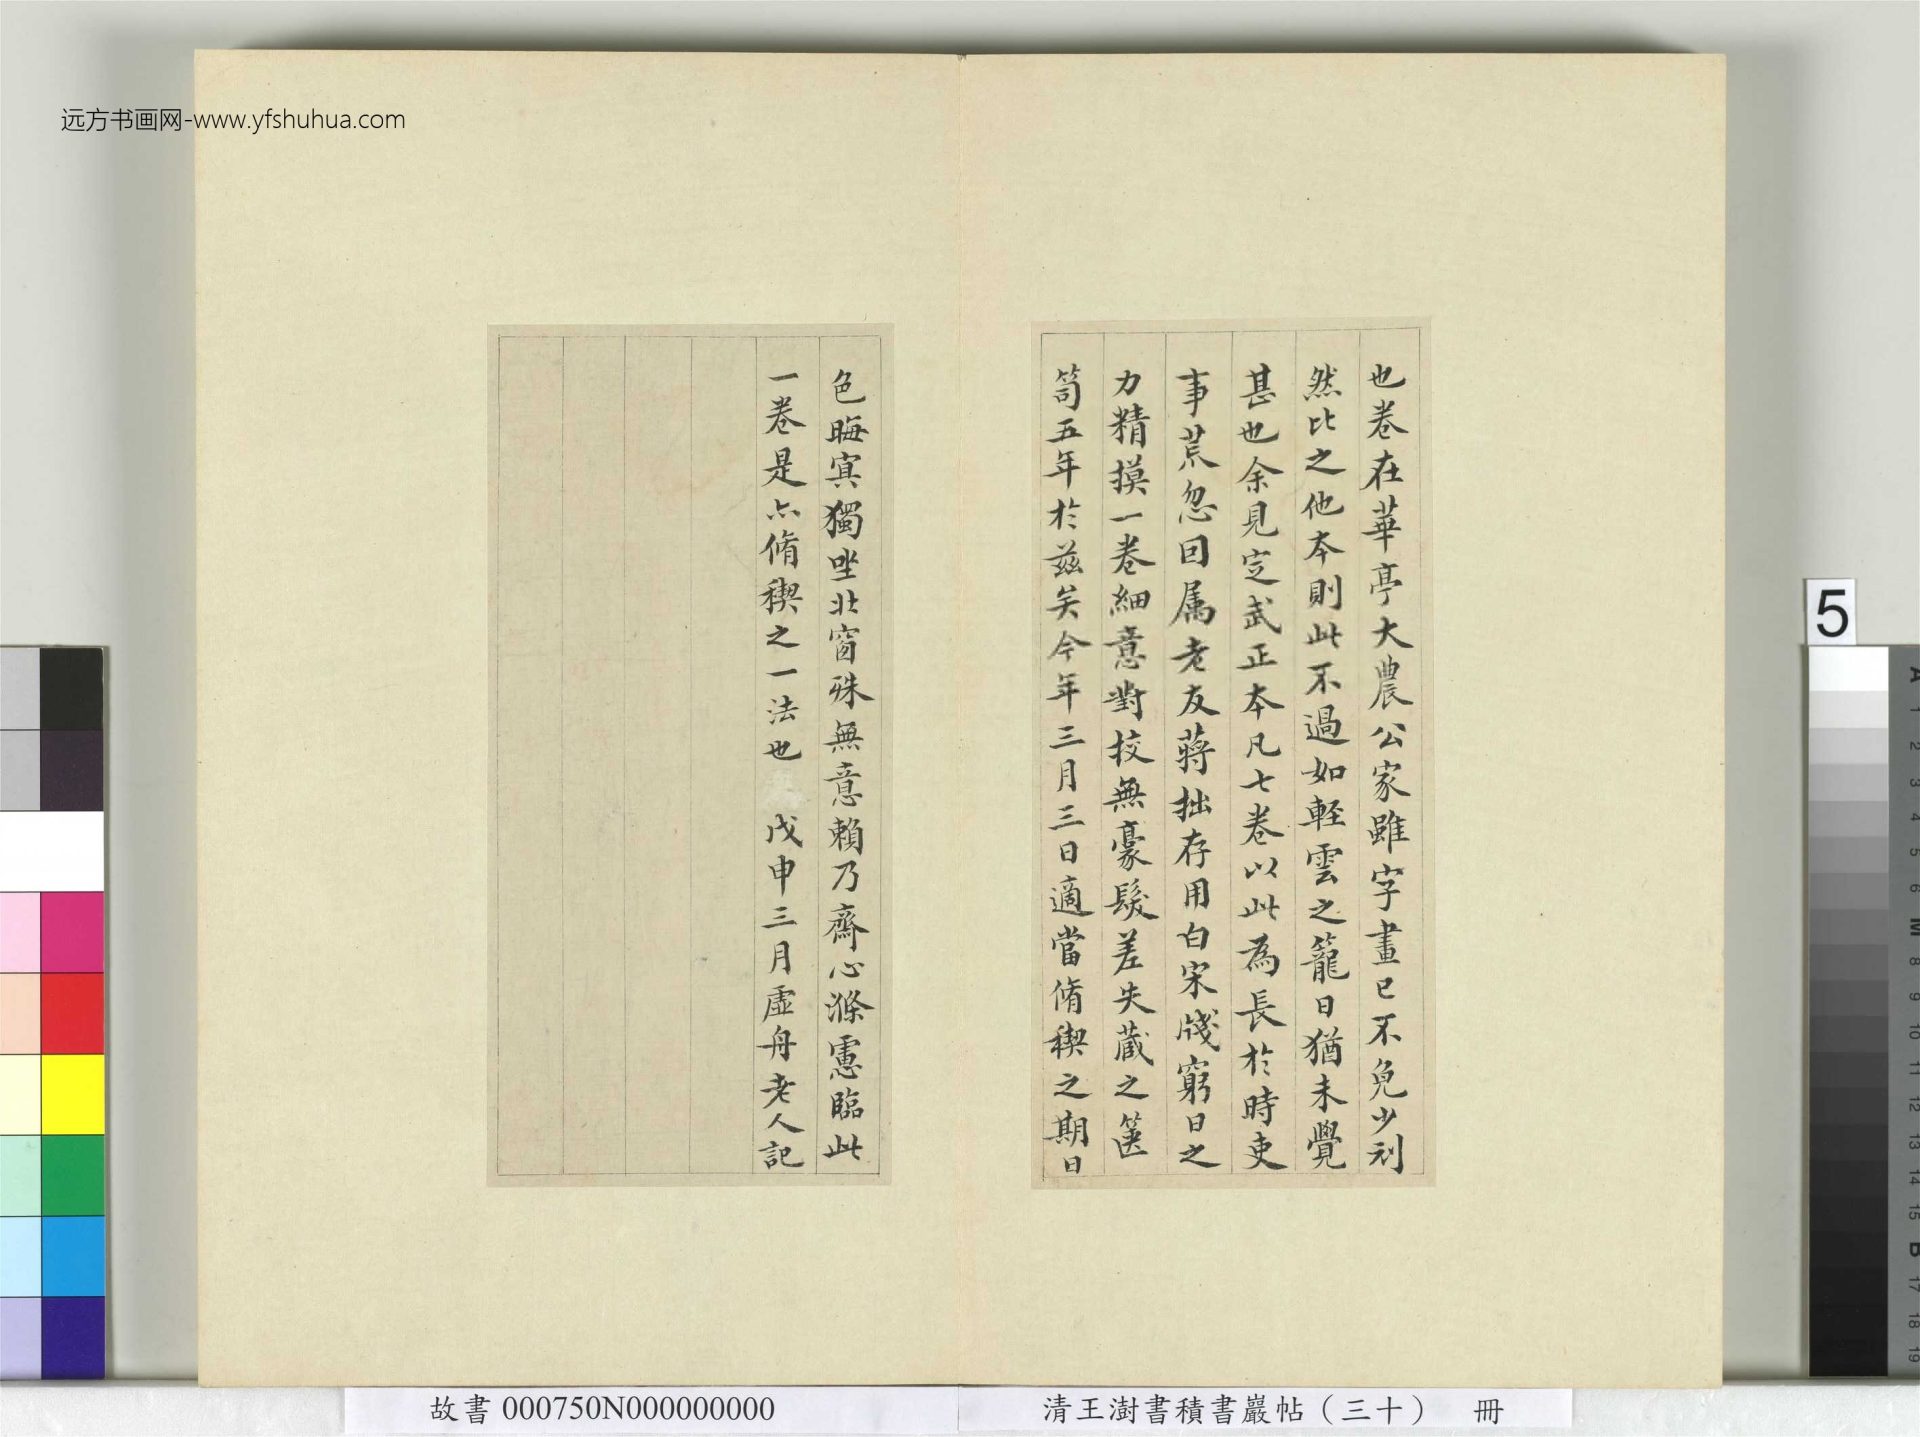 远方书画网-www.yfshuhua.com
也卷在華亭大農公家雖字畫已不免少刓
然比之他本則此不過如輕雲之籠日猶未覺
甚也余見定武正本凡七卷以此為長於時吏
事荒忽回属老友蔣拙存用白宋牋窮日之
力精摸一卷細意對挍無豪髮差失蔵之篋
笥五年於兹矣今年三月三日適當脩稧之期日
色晦㝠獨坐北窗殊無意賴乃齋心滌慮臨此
一卷是亦脩稧之一法也戊申三月虛舟老人記
5
故書 000750N000000000
清王澍書積書巖帖（三十） 冊
A
1
2
3
4
5
6
M
8
9
10
11
12
13
14
15
B
17
18
19